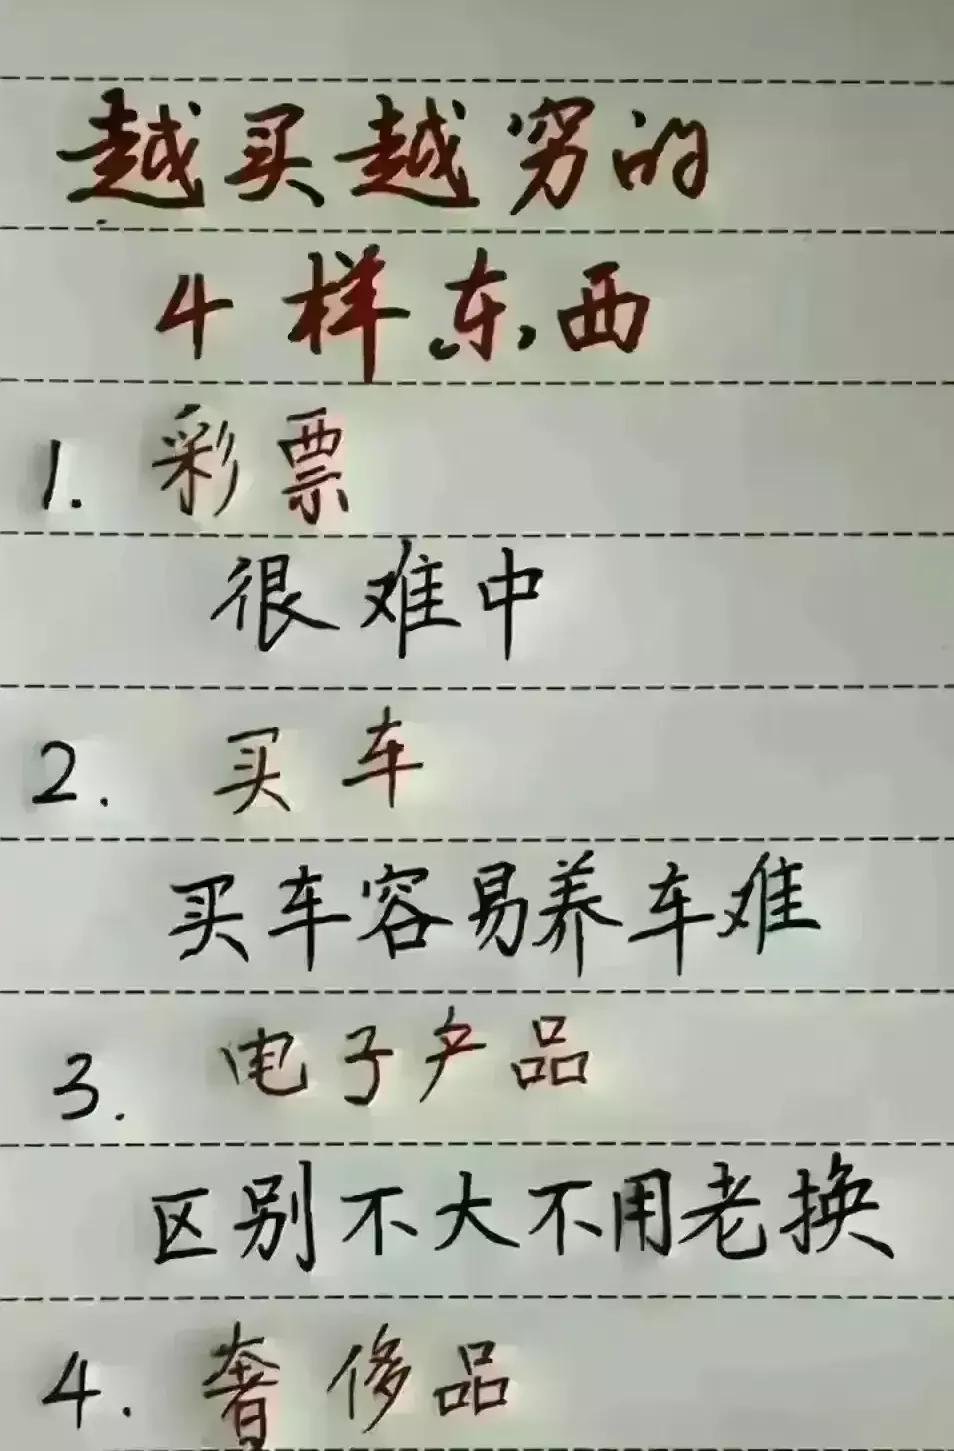 越买越穷的
4样东西
1. 彩票
很难中
2. 买车
买车容易养车难
3. 电子产品
区别不大不用老换
4. 奢侈品